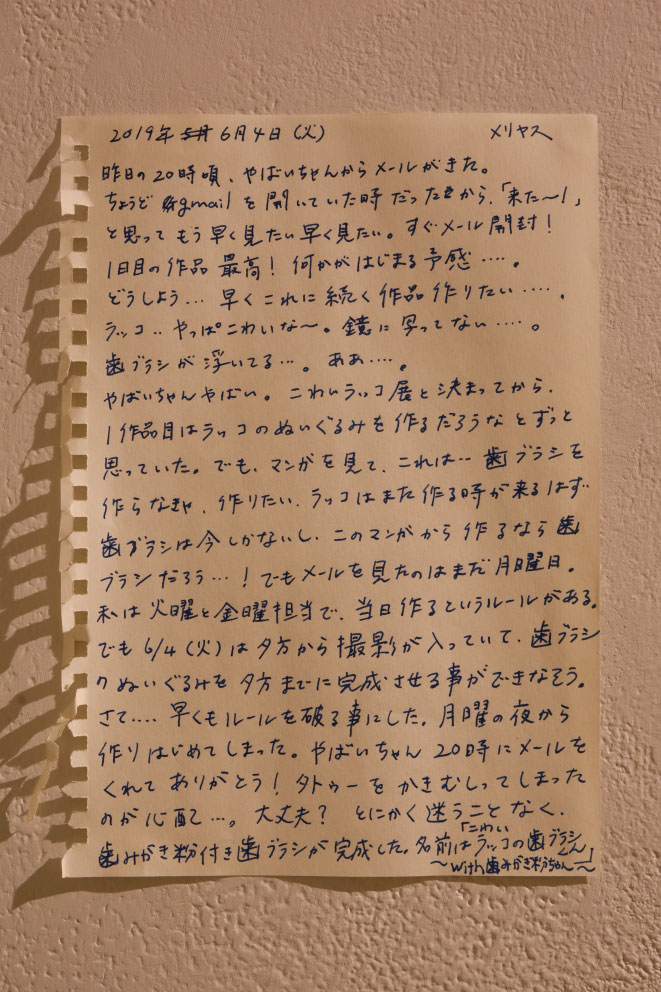 2019年 6月4日(火) メリヤス
昨日の20時頃、やばいちゃんからメールがきた。
ちょうど gmailを開いていた時だったから、「来た〜!」
と思って もう早く見たい早く見たい。すぐメール開封!
1日目の作品 最高! 何かがはじまる予感‥‥。
どうしよう… 早くこれに続く作品作りたい‥‥.
ラッコ‥やっぱこわいな〜。鏡に写ってない‥‥。
歯ブラシが浮いてる…。ああ‥‥。
やばいちゃんやばい。こわいラッコ展と決まってから、
1作品目はラッコのぬいぐるみを作るだろうなとずっと
思っていた。でも、マンガを見て、これは‥歯ブラシを
作らなきゃ、作りたい、ラッコはまた作る時が来るはず‥
歯ブラシは今しかないし、このマンガから作るなら歯
ブラシだろう…!でもメールを見たのはまだ月曜日。
私は火曜と金曜担当で、当日作るというルールがある。
でも6/4(火)は夕方から撮影が入っていて、歯ブラシ
のぬいぐるみを夕方までに完成させる事ができなそう。
さて‥‥早くもルールを破る事にした。月曜の夜から
作りはじめてしまった。やばいちゃん20時にメールを
くれてありがとう!タトゥーをかきむしってしまった
のが心配…。大丈夫? とにかく迷うことなく、
歯みがき粉付き歯ブラシが完成した。名前は「こわいラッコの歯ブラシくん」
〜with歯みがき粉ちゃん〜